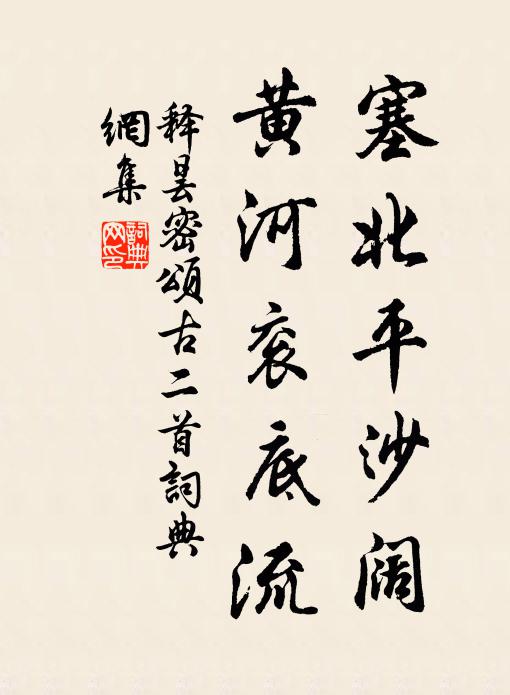 塞北平沙阔
黄河衮底流
释昙密颂古二首詞典
網集
詞典
网印